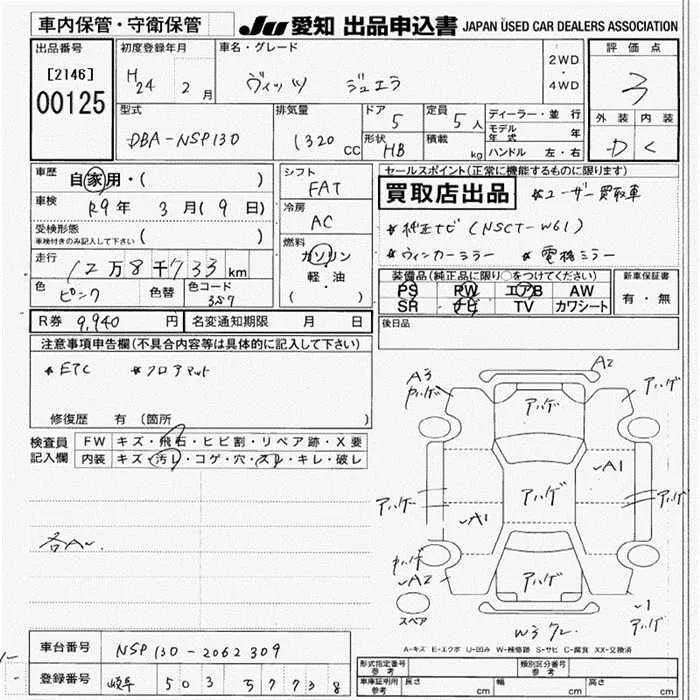 車内保管・守衛保管
JU 愛知 出品申込書 JAPAN USED CAR DEALERS ASSOCIATION
出品番号
[2146]
00125
初度登録年月
H24 2月
車名・グレード
ヴィッツ ジュエラ
2WD
・
4WD
評価点
3
外装 内装
D C
型式
DBA-NSP130
排気量
1320 CC
ドア 5
形状 HB
定員 5人
積載 kg
ディーラー・並行
モデル年式 年
ハンドル 左・右
車歴 自家用・( )
車検 R9年 3月(9日)
受検形態
車検付きのみ記入して下さい ( )
走行 12万8千733km
色 ピンク 色替 色コード 3S7
シフト FAT
冷房 AC
燃料
ガソリン
軽・油
( )
セールスポイント(正常に機能するものに限ります)
買取店出品 *ユーザー買取車
*純正ナビ(NSCT-W61)
*ウィンカーミラー *電格ミラー
装備品(純正品に限り○をつけてください)
PS PW エアB AW
SR ナビ TV カワシート
新車保証書
有・無
後日品
R券 9,940円 名変通知期限 月 日
注意事項申告欄(不具合内容等は具体的に記入して下さい)
*ETC *フロアマット
修復歴 有 (箇所 )
検査員記入欄
FW キズ・飛石・ヒビ割・リペア跡・X要
内装 キズ・汚レ・コゲ・穴・スレ・キレ・破レ
各A〜
A3 ハゲ
A2
アハゲ
アハゲ
A1
アハゲ
アハゲ
アハゲ
A1
ハゲ
A2
アハゲ
1
アハゲ
スペア
A-キズ E-エクボ U-凹み W-補修跡 S-サビ C-腐食 XX-交換済
車台番号 NSP130-2062309
登録番号 岐阜 503 5 7738
形式指定番号 参考
類別区分番号 参考
車庫証明用 参考 長さ cm 幅 cm 高さ cm